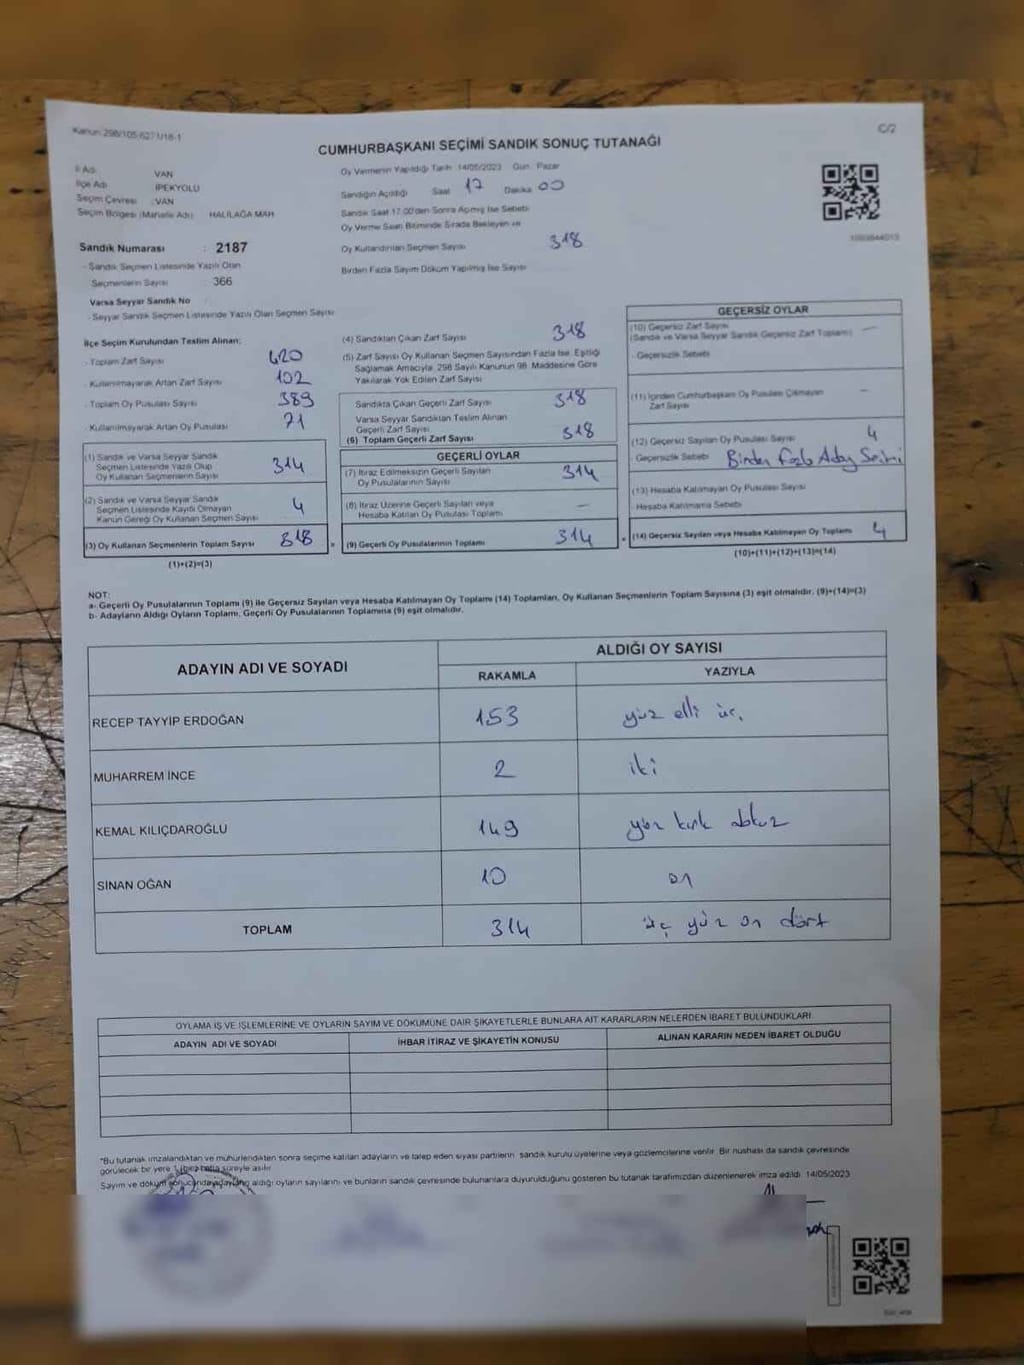 Kanun: 298/105-6271/18-1
C/2
CUMHURBAŞKANI SEÇİMİ SANDIK SONUÇ TUTANAĞI
İl Adı VAN
İlçe Adı İPEKYOLU
Seçim Çevresi : VAN
Seçim Bölgesi (Mahalle Adı) HALİLAĞA MAH
Sandık Numarası : 2187
- Sandık Seçmen Listesinde Yazılı Olan
Seçmenlerin Sayısı : 366
Varsa Seyyar Sandık No
- Seyyar Sandık Seçmen Listesinde Yazılı Olan Seçmen Sayısı
Oy Vermenin Yapıldığı Tarih 14/05/2023 Gün: Pazar
Sandığın Açıldığı Saat 17 Dakika 00
Sandık Saat 17.00'den Sonra Açılmış İse Sebebi
Oy Verme Saati Bitiminde Sırada Bekleyen ve
Oy Kullandırılan Seçmen Sayısı 318
Birden Fazla Sayım Döküm Yapılmış İse Sayısı
İlçe Seçim Kurulundan Teslim Alınan:
- Toplam Zarf Sayısı 420
- Kullanılmayarak Artan Zarf Sayısı 102
- Toplam Oy Pusulası Sayısı 389
- Kullanılmayarak Artan Oy Pusulası 71
(1) Sandık ve Varsa Seyyar Sandık
Seçmen Listesinde Yazılı Olup
Oy Kullanan Seçmenlerin Sayısı 314
(2) Sandık ve Varsa Seyyar Sandık
Seçmen Listesinde Kayıtlı Olmayan
Kanun Gereği Oy Kullanan Seçmen Sayısı 4
(3) Oy Kullanan Seçmenlerin Toplam Sayısı 318
(1)+(2)=(3)
(4) Sandıktan Çıkan Zarf Sayısı 318
(5) Zarf Sayısı Oy Kullanan Seçmen Sayısından Fazla İse, Eşitliği
Sağlamak Amacıyla, 298 Sayılı Kanunun 98. Maddesine Göre
Yakılarak Yok Edilen Zarf Sayısı
Sandıkta Çıkan Geçerli Zarf Sayısı 318
Varsa Seyyar Sandıktan Teslim Alınan
Geçerli Zarf Sayısı
(6) Toplam Geçerli Zarf Sayısı 318
GEÇERLİ OYLAR
(7) İtiraz Edilmeksizin Geçerli Sayılan
Oy Pusulalarının Sayısı 314
(8) İtiraz Üzerine Geçerli Sayılan veya
Hesaba Katılan Oy Pusulası Toplamı —
(9) Geçerli Oy Pusulalarının Toplamı 314
GEÇERSİZ OYLAR
(10) Geçersiz Zarf Sayısı —
(Sandık ve Varsa Seyyar Sandık Geçersiz Zarf Toplamı)
- Geçersizlik Sebebi
(11) İçinden Cumhurbaşkanı Oy Pusulası Çıkmayan
Zarf Sayısı —
(12) Geçersiz Sayılan Oy Pusulası Sayısı 4
- Geçersizlik Sebebi Birden Fazla Aday Seçimi
(13) Hesaba Katılmayan Oy Pusulası Sayısı
- Hesaba Katılmama Sebebi
(14) Geçersiz Sayılan veya Hesaba Katılmayan Oy Toplamı 4
(10)+(11)+(12)+(13)=(14)
NOT:
a- Geçerli Oy Pusulalarının Toplamı (9) ile Geçersiz Sayılan veya Hesaba Katılmayan Oy Toplamı (14) Toplamları, Oy Kullanan Seçmenlerin Toplam Sayısına (3) eşit olmalıdır. (9)+(14)=(3)
b- Adayların Aldığı Oyların Toplamı, Geçerli Oy Pusulalarının Toplamına (9) eşit olmalıdır.
ADAYIN ADI VE SOYADI
ALDIĞI OY SAYISI
RAKAMLA YAZIYLA
RECEP TAYYİP ERDOĞAN 153 yüz elli üç
MUHARREM İNCE 2 iki
KEMAL KILIÇDAROĞLU 149 yüz kırk dokuz
SİNAN OĞAN 10 on
TOPLAM 314 üç yüz on dört
OYLAMA İŞ VE İŞLEMLERİNE VE OYLARIN SAYIM VE DÖKÜMÜNE DAİR ŞİKAYETLERLE BUNLARA AİT KARARLARIN NELERDEN İBARET BULUNDUKLARI
ADAYIN ADI VE SOYADI İHBAR İTİRAZ VE ŞİKAYETİN KONUSU ALINAN KARARIN NEDEN İBARET OLDUĞU
*Bu tutanak imzalandıktan ve mühürlendikten sonra seçime katılan adayların ve talep eden siyasi partilerin sandık kurulu üyelerine veya gözlemcilerine verilir. Bir nüshası da sandık çevresinde
görülecek bir yere 1 (bir) hafta süreyle asılır.
Sayım ve döküm sonucunda adayların aldığı oyların sayılarını ve bunların sandık çevresinde bulunanlara duyurulduğunu gösteren bu tutanak tarafımızdan düzenlenerek imza edildi. 14/05/2023